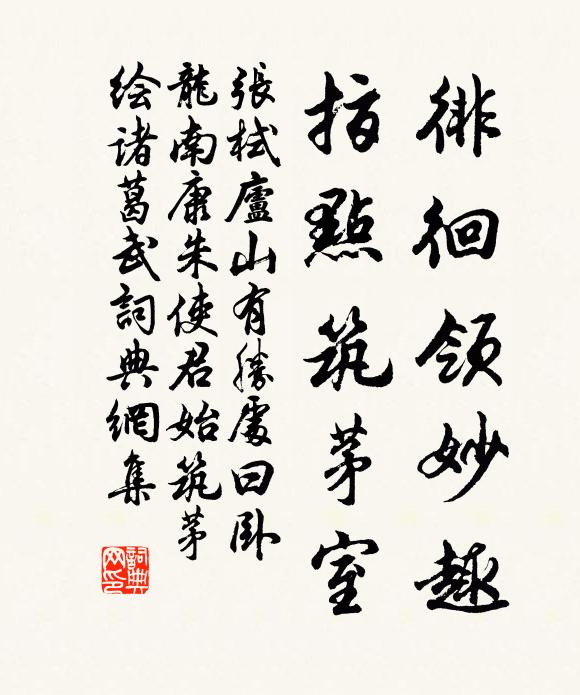 徘徊領妙趣
指點筑茅室
張栻廬山有勝處曰卧
龍南康朱使君始筑茅
绘諸葛武詞典網集
詞典网印